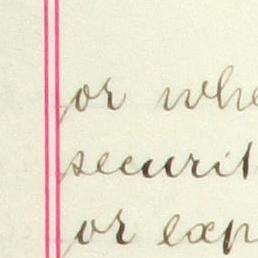 or whe
securit
or exp